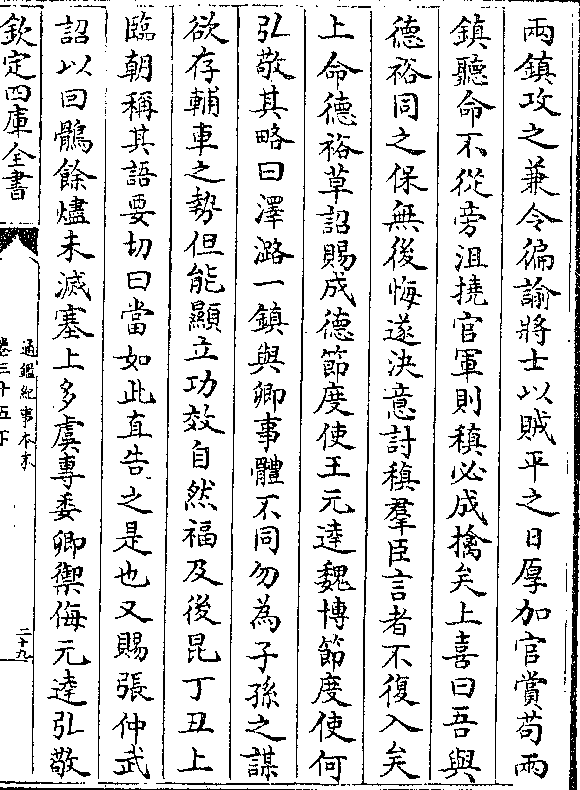 兩鎮攻之兼令徧諭將士以賊平之日厚加官賞苟兩
鎮聽命不從旁沮撓官軍則稹必成擒矣上喜曰吾與
德裕同之保無後悔遂決意討稹羣臣言者不復入矣
上命德裕草詔賜成德節度使王元逵魏博節度使何
弘敬其略曰澤潞一鎮與卿事體不同勿為子孫之謀
欲存輔車之勢但能顯立功效自然福及後昆丁丑上
臨朝稱其語要切曰當如此直告之是也又賜張仲武
詔以回鶻餘燼未滅塞上多虞專委卿禦侮元逵弘敬
欽定四庫全書
通鑑紀事本末
卷三十五下
二十九